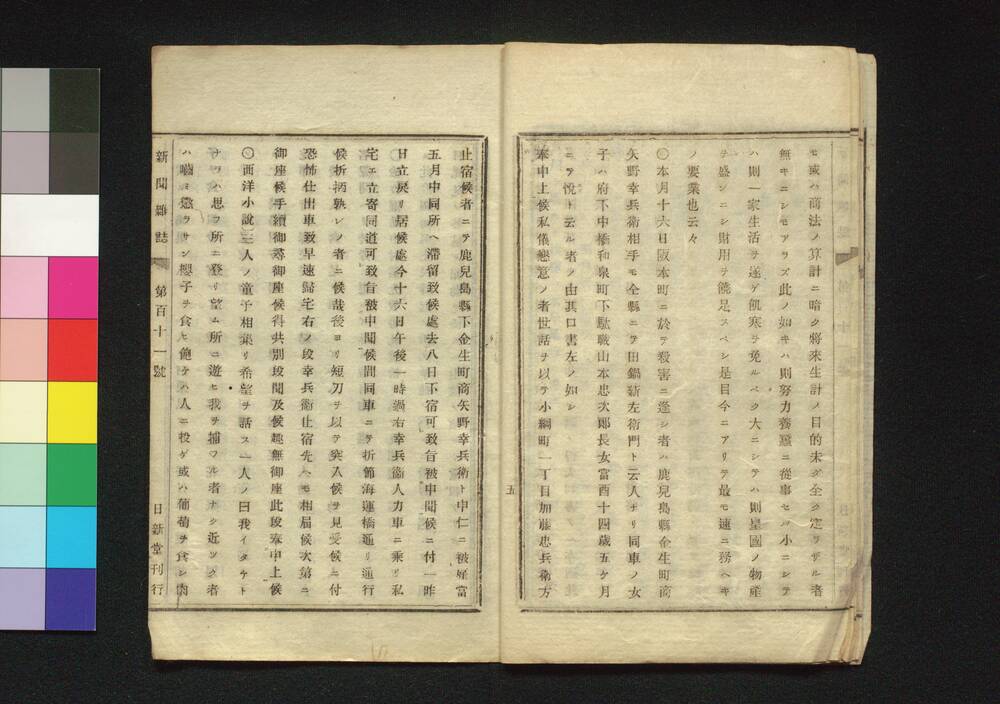 モ或ハ商法ノ算計ニ暗ク將來生計ノ目的未ダ全ク定ラザル者
無キニシモアラズ此ノ如キハ則努力養蠶ニ從事セバ小ニシテ
ハ則一家生活ヲ遂ゲ飢寒ヲ免ルベク大ニシテハ則皇國ノ物產
ヲ盛ンニシ財用ヲ饒足スベシ是目今ニアリテ最モ速ニ務ヘキ
ノ要業也云々
〇本月十六日阪本町ニ於テ殺害ニ逢シ者ハ鹿兒島縣金生町商
矢野幸兵衛相手モ仝縣ニテ田鍋新左衛門ト云人ナリ同車ノ女
子ハ府下中橋和泉町下駄職山本忠次郎長女富酉十四歳五ケ月
ニテ悅ト云ル者ノ由其口書左ノ如シ
奉申上候私儀懇意ノ者世話ヲ以テ小網町一丁目加藤忠兵衛方
五
止宿候者ニテ鹿兒島縣下金生町商矢野幸兵衛ト申仁ニ被雇當
五月中同所ヘ滯留致候處去八日下宿可致旨被申聞候ニ付一昨
日立戻リ居候處今十六日午後一時過右幸兵衛人力車ニ乘リ私
宅エ立寄同道可致旨被申聞候間同車ニテ折節海運橋通リ通行
候折柄孰レノ者ニ候哉後ヨリ短刀ヲ以テ突入候ヲ見受候ニ付
恐怖仕出車致早速歸宅右ノ段幸兵衛止宿先ヘモ相屆候次第ニ
御座候手續御尋御座候得共別段聞及候趣無御座此段奉申上候
〇西洋小說ニ三人ノ童子相集リ希望ヲ話ス一人ノ曰我イタチト
ナラハ思フ所ニ登リ望ム所ニ遊ヒ我ヲ捕フル者ナク近ツク者
ハ嚙ミ懲ラサン櫻子ヲ食ヒ飽ケハ人ニ投ゲ或ハ葡萄ヲ食シ肉
新聞雜誌 第百十一號 日新堂刊行